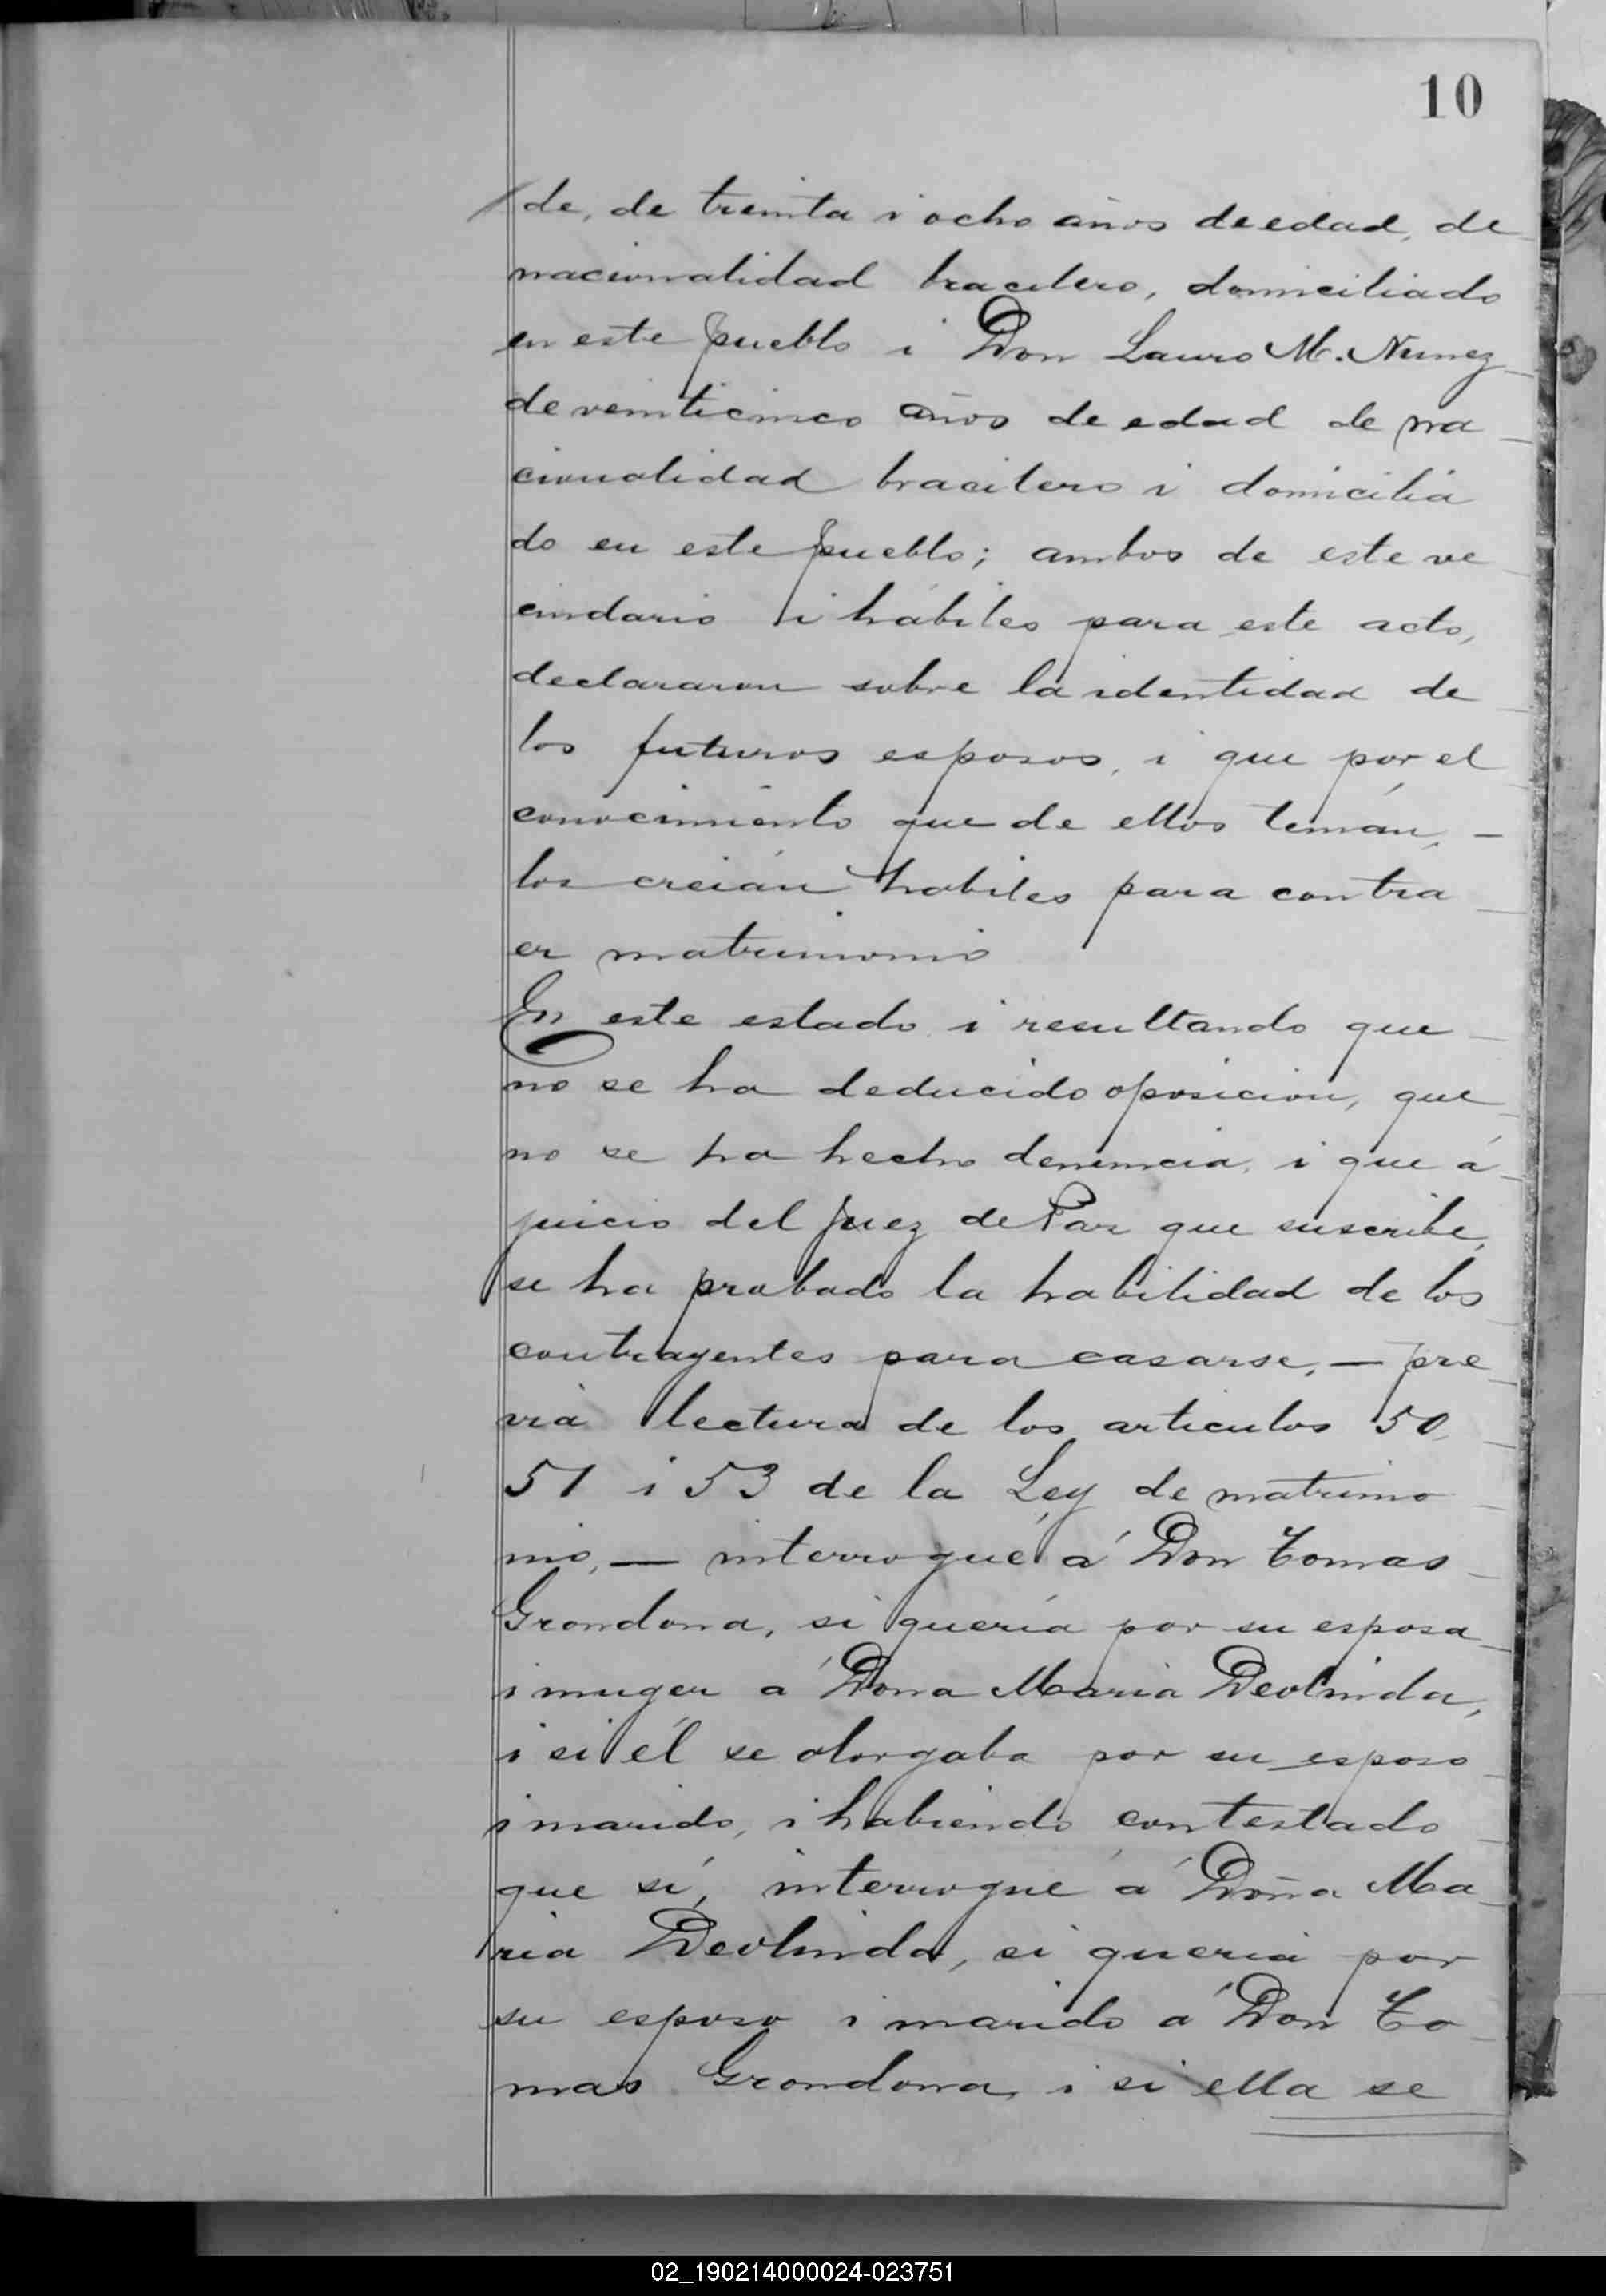 10
de, de treinta i ocho años de edad, de
nacionalidad bracilero, domiciliado
en este pueblo i Don Lauro M. Nunez
de veinticinco años de edad de na
cionalidad bracilero i domicilia
do en este pueblo; ambos de este ve
cindario i hábiles para este acto,
declararon sobre la identidad de
los futuros esposos, i que por el
conocimiento que de ellos tenián, —
los creián habiles para contra
er matrimonio
En este estado i resultando que
no se ha deducido oposicion, que
no se ha hecho denuncia, i que á
juicio del Juez de Paz que suscribe,
se ha probado la habilidad de los
contrayentes para casarse, — pre
via lectura de los articulos 50,
51 i 53 de la Ley de matrimo
nio, — interrogué á Don Tomas
Grondona, si quería por su esposa
i muger á Dona Maria Deolinda,
i si él se otorgaba por su esposo
i marido, i habiendo contestado
que sí, interrogué á Doña Ma
ria Deolinda, si queria por
su esposo i marido á Don To
mas Grondona, i si ella se
02_190214000024-023751